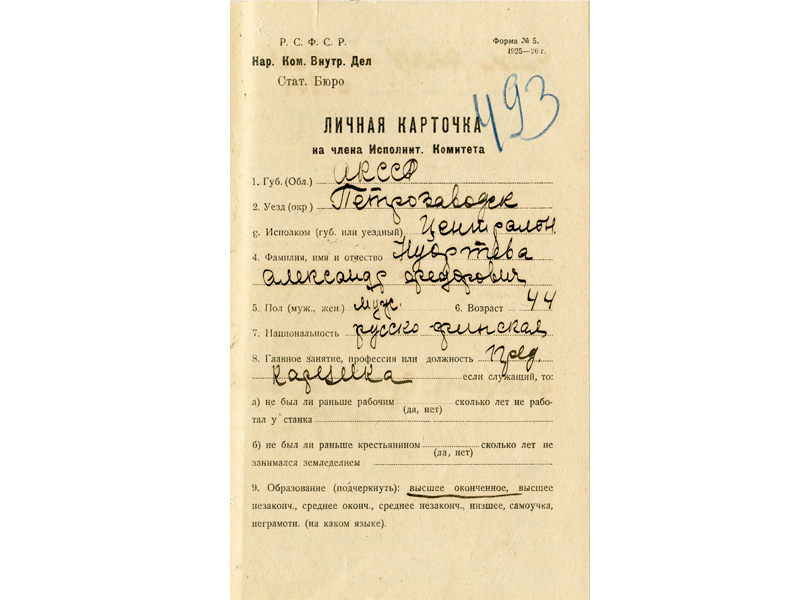 Р. С. Ф. С. Р.
Нар. Ком. Внутр. Дел
Стат. Бюро
Форма № 5.
1925—26 г.
493
ЛИЧНАЯ КАРТОЧКА
на члена Исполнит. Комитета
1. Губ. (Обл.) АКССР
2. Уезд (окр) Петрозаводск
3. Исполком (губ. или уездный)
4. Фамилия, имя и отчество Нуортева
Александр Федорович
5. Пол (муж., жен.) муж. 6. Возраст 44
7. Национальность русско-финская
8. Главное занятие, профессия или должность пред.
если служащий, то:
а) не был ли раньше рабочим сколько лет не рабо-
(да, нет)
тал у станка
б) не был ли раньше крестьянином сколько лет не
(да, нет)
занимался земледелием
9. Образование (подчеркнуть): высшее оконченное, высшее
незаконч., среднее оконч., среднее незаконч., низшее, самоучка,
неграмотн. (на каком языке).